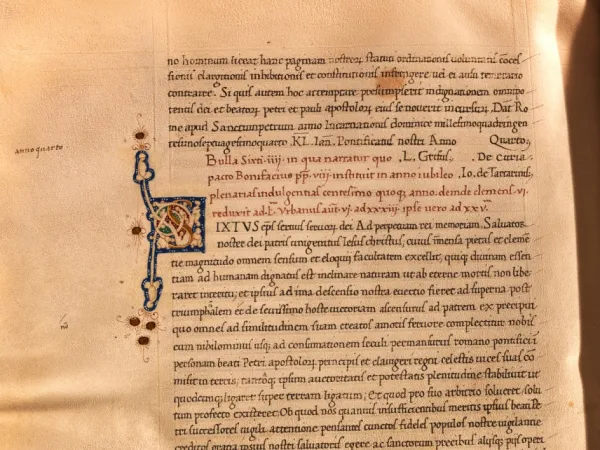 no hominum liceat hanc paginam nostrorꝝ statuti ordinationis voluntatis cōces
sionis elargitionis inhibitionis et constitutionis infringere uel ei ausu temerario
contraire. Si quis autem hoc attemptare presumpserit indignationem omnipo
tentis dei et beatorꝝ petri et pauli apostolorꝝ eius se nouerit incursurꝝ. Dat̄ Ro
me apud Sanctumpetrum anno Incarnationis dominice millesimoquadringen
tesimoseptuagesimoquarto. Kl. Ian̄. Pontificatus nostri Anno Quarto.
anno quarto
Bulla Sixti .iiij. in qua narratur quo .L. Grifus. . De Curia
pacto Bonifacius pp̄. viii. instituit in anno iubileo . Io. de Tartarinis.
plenarias indulgentias centesimo quoqꝫ anno. deinde clemens. vi.
reduxit ad .L. Vrbanus aūt. vj. ad xxxiij. ipse vero ad xxv.
SIXTVS ep̄s seruus seruorꝝ dei Ad perpetuam rei memoriam. Saluator
noster dei patris unigenitus Iesus christus, cuius īmensa pietas et cleme
tie magnitudo omnem sensum et eloquij facultatem excellit, quiqꝫ diuinam essen
tiam ad humanam dignatus est inclinare naturam ut ab eterne mortis non libe
raret interitu, et ipsius ad ima descensio nostra euectio fieret ad superna post
triumphalem et de seuissimo hoste uictoriam ascensurus ad patrem ex precipui
quo omnes ad similitudinem suam creatos amoris feruore complectitur nobis
cum nihilominus usqꝫ ad consumationem seculi permansurus romano pontifici i
personam beati Petri apostolorꝝ principis et clauigeri regni celestis uices suas cō
misit in terris, tantoqꝫ ipsum auctoritatis et potestatis plenitudine stabiliuit ut
quodcunqꝫ ligaret super terram ligatum, Et quod pro suo arbitrio solueret solu
tum profecto existeret: Ob quod nos quanuis insufficientibus meritis ipsius beati Pe
tri successores uigili attentione pensantes cunctos fideles populos nostre uigilantie
creditos gratia ipsius nostri saluatoris egere ac sanctorum precibus alijsqꝫ pijs operi